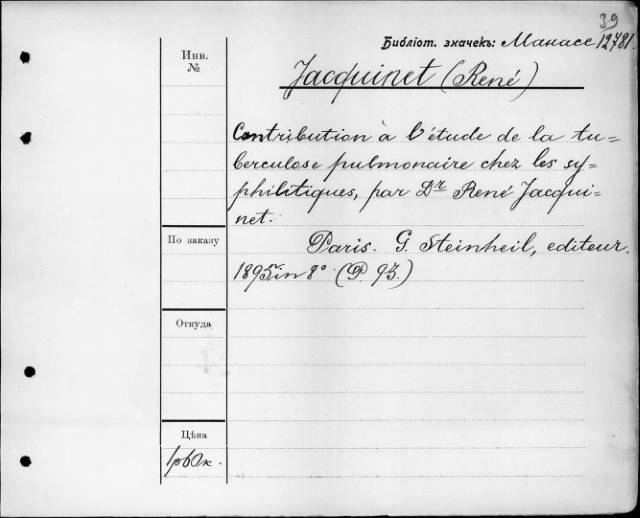 39
Библіот. значекъ: Манасс 12781
Инв.
№
Jacquinet (René)
Contribution à l'étude de la tu=
berculose pulmonaire chez les sy=
philitiques, par Dr René Jacqui=
net.
По заказу
Paris. G. Steinheil, editeur.
1895. in 8° (P. 93.)
Откуда
Цѣна
1р60к.